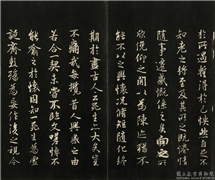 於所遇蹔得於己快然自足不
知老之將至及其所之既惓情
隨事遷感慨係之矣向之所
欣俛仰之間以為陳迹猶不
能不以之興懷況脩短隨化終
期於盡古人云死生亦大矣豈
不痛哉每攬昔人興感之由
若合一契未嘗不臨文嗟悼不
能喻之於懷固知一死生為虛
誕齊彭殤為妄作後之視今